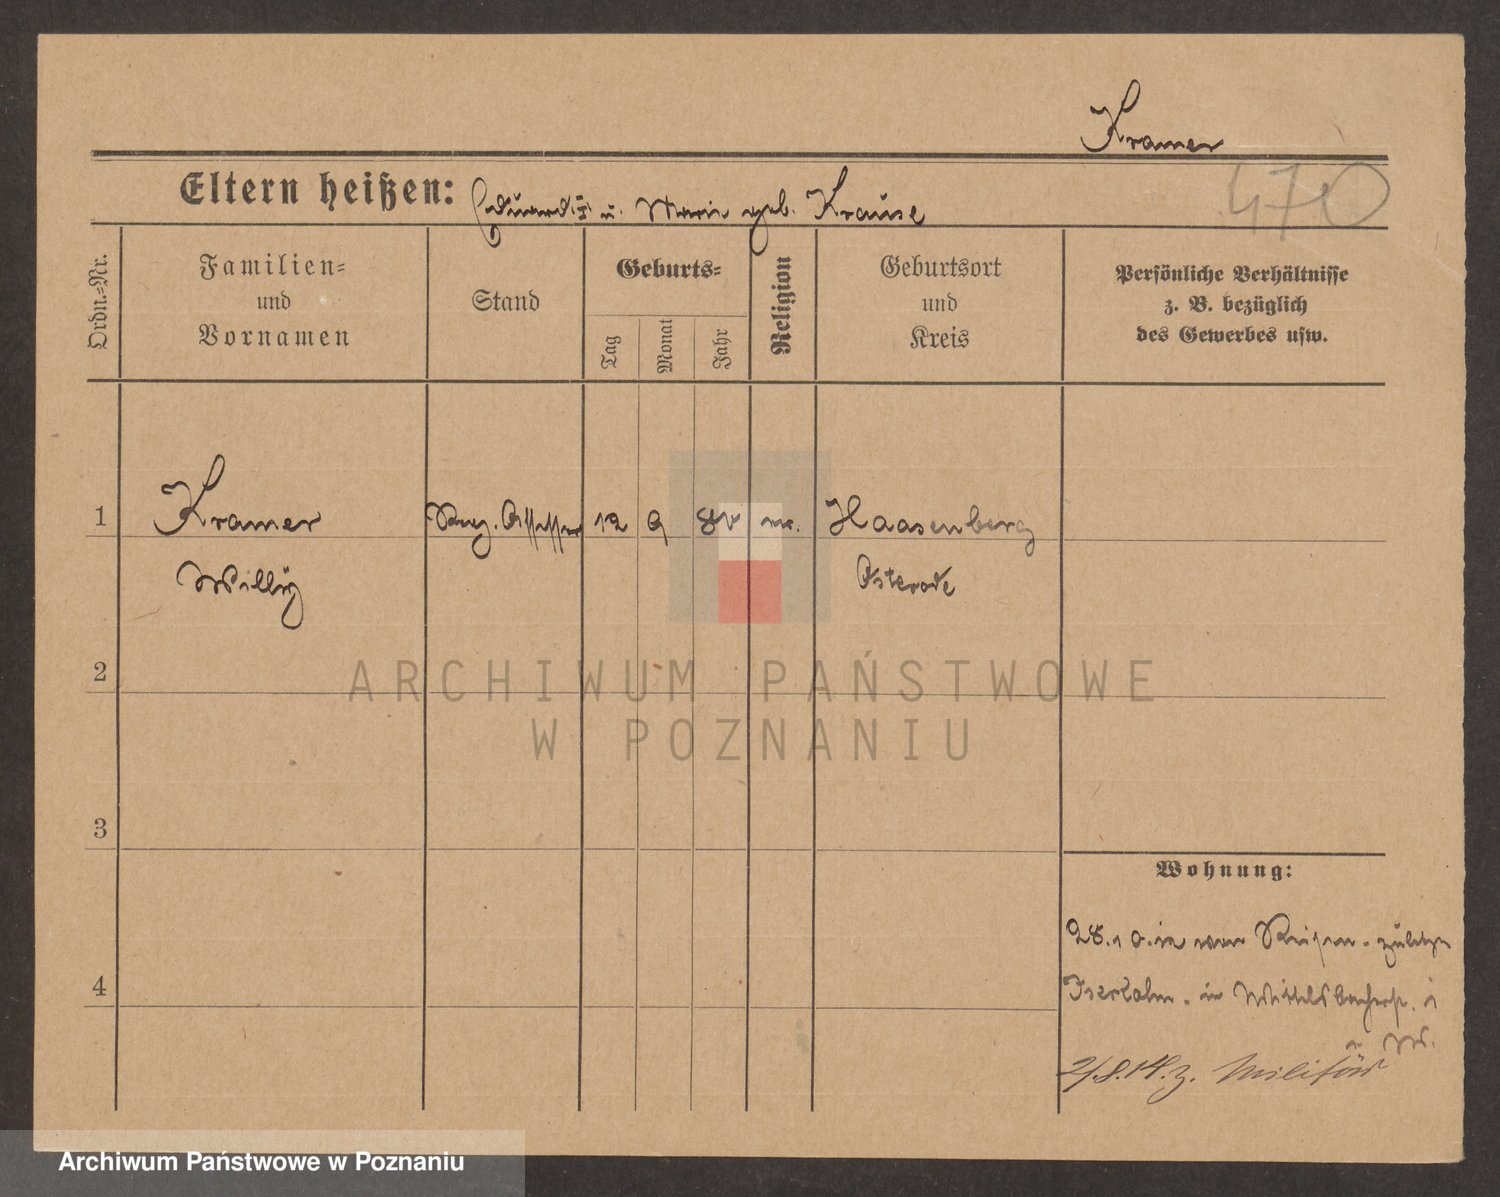 Kramer
470
Eltern heißen: Eduard u. Marie geb. Krause
Ordn.=Nr.
Familien=
und
Vornamen
Stand
Geburts=
Tag
Monat
Jahr
Religion
Geburtsort
und
Kreis
Persönliche Verhältnisse
z. B. bezüglich
des Gewerbes usw.
1 Kramer Reg. Assessor 12 9 Haasenberg
Willy Osterode
2
ARCHIWUM PAŃSTWOWE
W POZNANIU
3
Wohnung:
28.10.12 von Reisen. zuletzt
4
Iserlohn. in Wittelsbacherst. 1
2/8.14. z. Militär
Archiwum Państwowe w Poznaniu